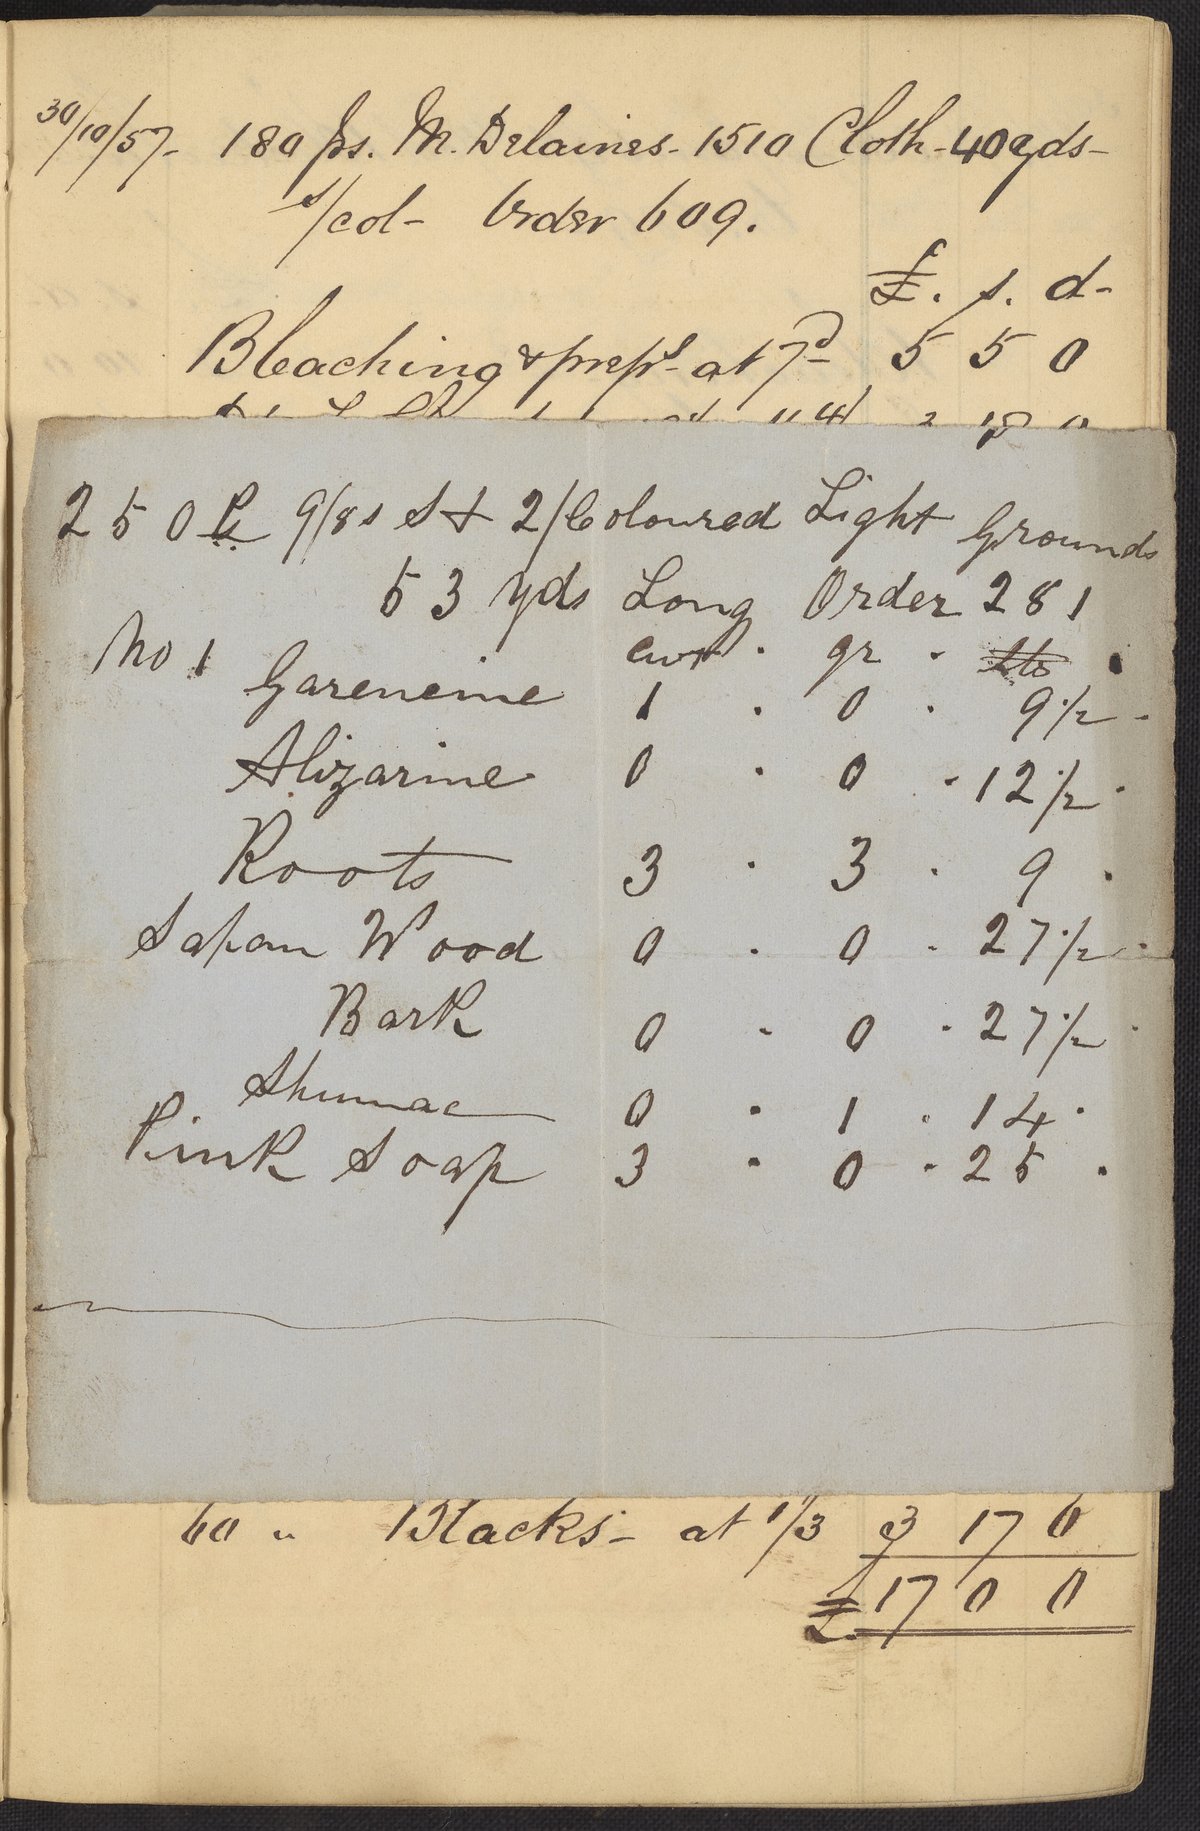 30/10/57- 180 ps. M. Delaines- 1510 Cloth- 40 yds-
s/col- Order 609.
£. s. d-
Bleaching & prepg- at 7d- 5 5 0
250 Ps 9/8s St & 2/Coloured Light Grounds
53 yds Long Order 281
No 1 cwt . qr . lbs
Gareneine 1 . 0 . 9 1/2 -
Alizarine 0 . 0 . 12 1/2 .
Roots 3 . 3 . 9 .
Sapan Wood 0 . 0 . 27 1/2 .
Bark 0 . 0 . 27 1/2 .
Shumac 0 . 1 . 14 .
Pink Soap 3 . 0 . 25 .
60 " Blacks- at 1/3 3 17 6
£. 17 0 0